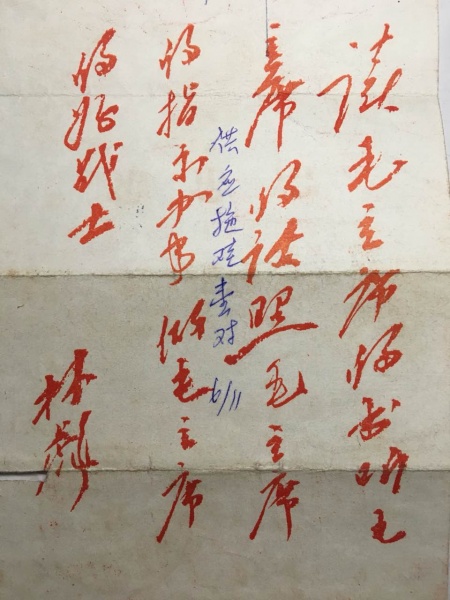 读毛主席的书听毛
主席的话照毛主席
供应拖壹对 6/11
的指示办事做毛主席
的好战士
林彪